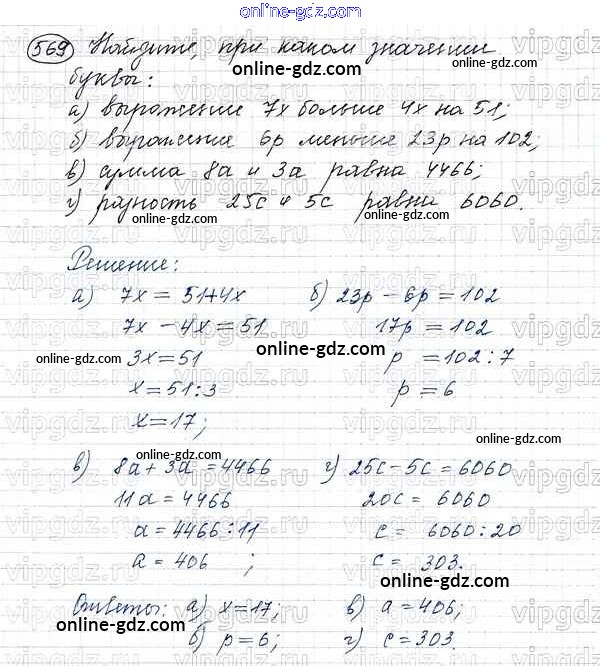 online-gdz.com
569 Найдите, при каком значении
online-gdz.com
буквы:
а) выражение 7x больше 4x на 51;
б) выражение 6p меньше 23p на 102;
в) сумма 8a и 3a равна 4466;
г) разность 25c и 5c равна 6060.
online-gdz.com online-gdz.com
Решение:
а) 7x = 51+4x б) 23p - 6p = 102
7x - 4x = 51 17p = 102
online-gdz.com
3x = 51 p = 102:7
online-gdz.com online-gdz.com
x = 51:3 p = 6
x = 17;
online-gdz.com
в) 8a + 3a = 4466 г) 25c - 5c = 6060
online-gdz.com
11a = 4466 20c = 6060
a = 4466:11 c = 6060:20
a = 406 ; c = 303.
online-gdz.com
online-gdz.com
Ответы: а) x = 17; в) a = 406;
online-gdz.com
б) p = 6; г) c = 303.
online-gdz.com
vipgdz.ru